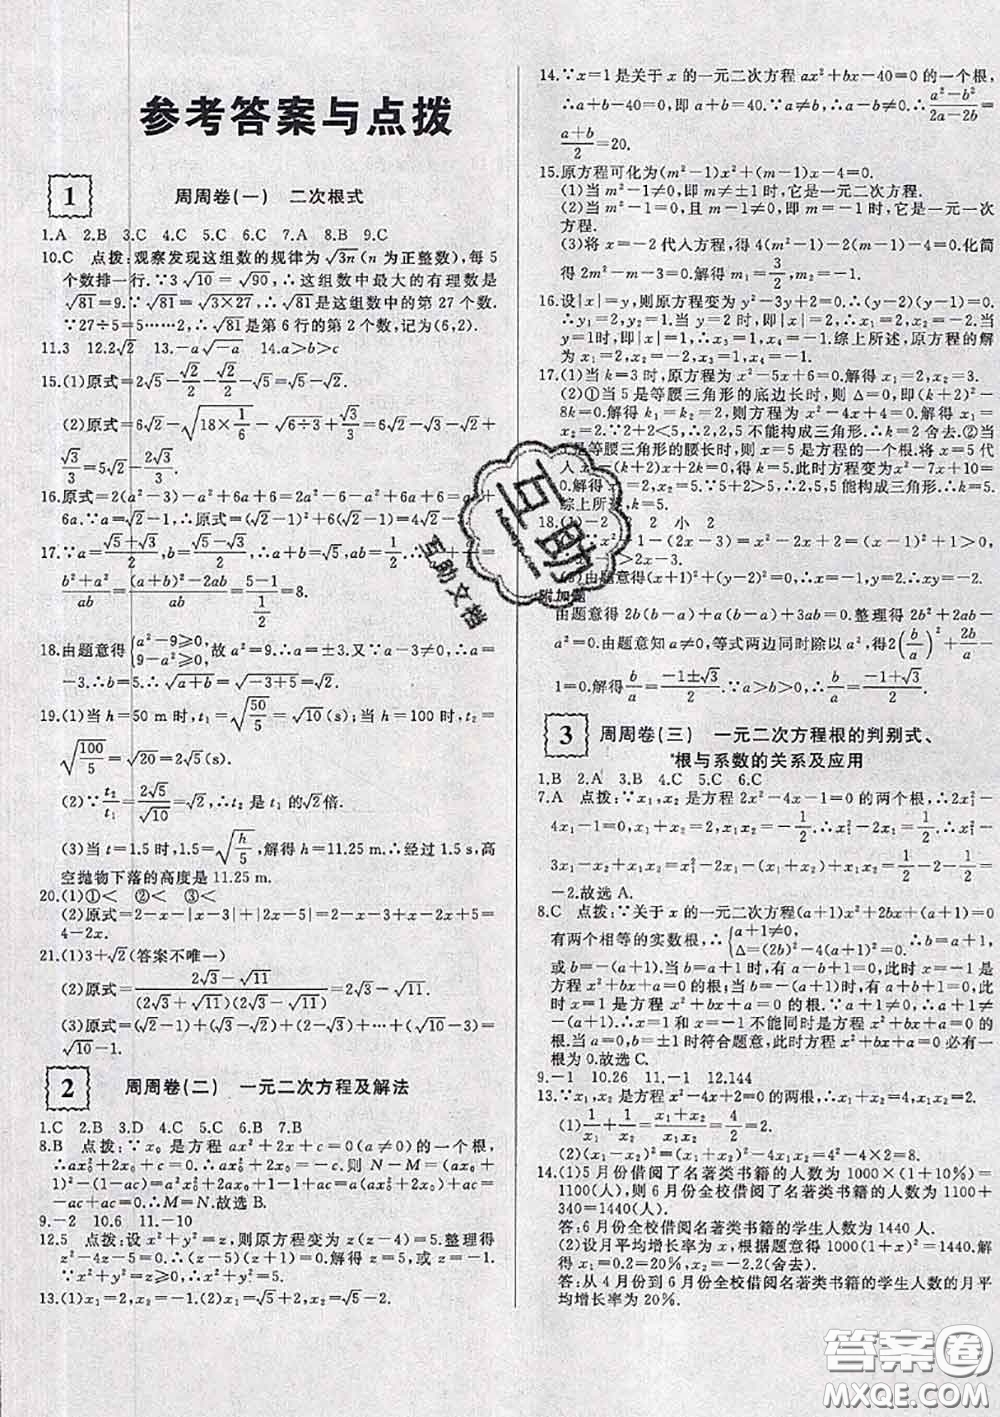 参考答案与点拨
1 周周卷(一) 二次根式
1.A 2.B 3.C 4.C 5.C 6.C 7.A 8.B 9.C
10.C 点拨:观察发现这组数的规律为√3n(n 为正整数),每 5
个数排一行.∵3√10=√90,∴这组数中最大的有理数是
√81=9.∵√81=√3×27,∴√81是这组数中的第 27 个数.
∵27÷5=5……2,∴√81是第 6 行的第 2 个数,记为(6,2).
11.3 12.2√2 13.-a√-a 14.a>b>c
15.(1)原式=2√5-√2/2-√2/2-√5=√5-√2.
(2)原式=6√2-√(18×1/6)-√3+√3/3=6√2-√3-√3+
√3/3=
16.原式=2(a²-3)-a²+6a+6=2a²-6-a²+6a+6=a²+
6a.∵a=√2-1,∴原式=(√2-1)²+6(√2-1)=4√2-3.
17.∵a=(√5+√3)/2,b=(√5-√3)/2,∴a+b=√5,ab=1/2.∴
(b²+a²)/ab=((a+b)²-2ab)/ab=(5-1)/(1/2)=8.
18.由题意得{a²-9≥0, 9-a²≥0,故 a²=9.∴a=±3.又∵a-3≠0,∴a=
-3.∴b=5.∴√a+b=√-3+5=√2.
19.(1)当 h=50 m 时,t₁=√(50/5)=√10(s);当 h=100 时,t₂=
√(100/5)=√20=2√5(s).
(2)∵t₂/t₁=2√5/√10=√2,∴t₂ 是 t₁ 的√2倍.
(3)当 t=1.5 时,1.5=√(h/5),解得 h=11.25.∴经过 1.5 s,高
空抛物下落的高度是 11.25 m.
20.(1)①< ②< ③<
(2)原式=2-x-|x-3|+|2x-5|=2-x-3+x-2x+5=
4-2x.
21.(1)3+√2(答案不唯一)
(2)原式=(2√3-√11)/((2√3+√11)(2√3-√11))=2√3-√11.
(3)原式=(√2-1)+(√3-√2)+(2-√3)+…+(√10-3)=
√10-1.
2 周周卷(二) 一元二次方程及解法
1.C 2.B 3.D 4.C 5.C 6.B 7.B
8.B 点拨:∵x₀ 是方程 ax²+2x+c=0(a≠0)的一个根,
∴ax₀²+2x₀+c=0,∴ax₀²+2x₀=-c.则 N-M=(ax₀+
1)²-(1-ac)=a²x₀²+2ax₀+1-1+ac=a(ax₀²+2x₀)+
ac=-ac+ac=0.∴M=N.故选 B.
9.-2 10.6 11.-10
12.5 点拨:设 x²+y²=z,则原方程变为 z(z-4)=5.整理得
z²-4z-5=0.∴(z-5)(z+1)=0.解得 z=5,或 z=-1.
∵x²+y²=z≥0,∴x²+y²=5.
13.(1)x₁=2,x₂=-1.(2)x₁=√5+2,x₂=√5-2.
14.∵x=1 是关于 x 的一元二次方程 ax²+bx-40=0 的一个根,
∴a+b-40=0,即 a+b=40.∵a≠b,∴a-b≠0.∴(a²-b²)/(2a-2b)=
(a+b)/2=20.
15.原方程可化为(m²-1)x²+(m-1)x-4=0.
(1)当 m²-1≠0,即 m≠±1 时,它是一元二次方程.
(2)当 m²-1=0,且 m-1≠0,即 m=-1 时,它是一元一次
方程.
(3)将 x=-2 代入方程,得 4(m²-1)-2(m-1)-4=0.化简
得 2m²-m-3=0.解得 m₁=3/2,m₂=-1.
16.设|x|=y,则原方程变为 y²-3y+2=0.∴(y-2)(y-1)=0.
∴y₁=2,y₂=1.当 y=2 时,即|x|=2,∴x₁=2,x₂=-2.当
y=1 时,即|x|=1,∴x₃=1,x₄=-1.综上所述,原方程的解
为 x₁=2,x₂=-2,x₃=1,x₄=-1.
17.(1)当 k=3 时,原方程为 x²-5x+6=0.解得 x₁=2,x₂=3.
(2)①当 5 是等腰三角形的底边长时,则 Δ=0,即(k+2)²-
8k=0.解得 k₁=k₂=2,则方程为 x²-4x+4=0.解得 x₁=
x₂=2.∵2+2<5,∴2,2,5 不能构成三角形.∴k=2 舍去.②当
5是等腰三角形的腰长时,则 x=5 是方程的一个根.将 x=5 代
入 x²-(k+2)x+2k=0.得 k=5.此时方程为 x²-7x+10=
0.解得 x₁=5,x₂=2.∵5+2>5,∴2,5,5能构成三角形.∴k=5.
综上所述,k=5.
18.(1)-2 2 小 2
∵x²-1-(2x-3)=x²-2x+2=(x-1)²+1>0,
-1>2x-3.
(3)由题意得(x+1)²+(y-2)²=0.∴x=-1,y=2.∴xy=-2.
附加题
由题意得 2b(b-a)+a(b-a)+3ab=0.整理得 2b²+2ab-
a²=0.由题意知 a≠0,等式两边同时除以 a²,得2(b/a)²+2b/a-
1=0.解得b/a=(-1±√3)/2.∵a>b>0,∴b/a=(-1+√3)/2.
3 周周卷(三) 一元二次方程根的判别式、
根与系数的关系及应用
1.B 2.A 3.B 4.C 5.C 6.C
7.A 点拨:∵x₁,x₂ 是方程 2x²-4x-1=0 的两个根,∴2x₁²-
4x₁-1=0,x₁+x₂=2,x₁x₂=-1/2.∴x₁²-2x₁=1/2.∴x₁²-
3x₁-x₂+x₁x₂=x₁²-2x₁-(x₁+x₂)+x₁x₂=1/2-2-1/2=
-2.故选 A.
8.C 点拨:∵关于 x 的一元二次方程(a+1)x²+2bx+(a+1)=0
有两个相等的实数根,∴{a+1≠0, Δ=(2b)²-4(a+1)²=0.∴b=a+1,
或b=-(a+1).当 b=a+1 时,有 a-b+1=0,此时 x=-1 是
方程 x²+bx+a=0 的根;当 b=-(a+1)时,有 a+b+1=0,此
时 x=1 是方程 x²+bx+a=0 的根.∵a+1≠0,∴a+1≠
-(a+1).∴x=1 和 x=-1 不能同时是方程 x²+bx+a=0 的
根.当 a=0,b=±1时符合题意,此时方程 x²+bx+a=0 必有一
根为 0.故选 C.
9.-1 10.26 11.-1 12.144
13.∵x₁,x₂ 是方程 x²-4x+2=0 的两根,∴x₁+x₂=4,x₁x₂=2.
(1)1/x₁+1/x₂=(x₁+x₂)/x₁x₂=4/2=2.
(2)(x₁-x₂)²=(x₁+x₂)²-4x₁x₂=4²-4×2=8.
14.(1)5 月份借阅了名著类书籍的人数为 1000×(1+10%)=
1100(人),则 6 月份全校借阅了名著类书籍的人数为 1100+
340=1440(人).
答:6 月份全校借阅名著类书籍的学生人数为 1440 人.
(2)设月平均增长率为 x,根据题意得 1000(1+x)²=1440.解
得 x₁=0.2=20%,x₂=-2.2(舍去).
答:从 4 月份到 6 月份全校借阅名著类书籍的学生人数的月平
均增长率为 20%.
互助
互助文档
答案圈
MXQE.COM